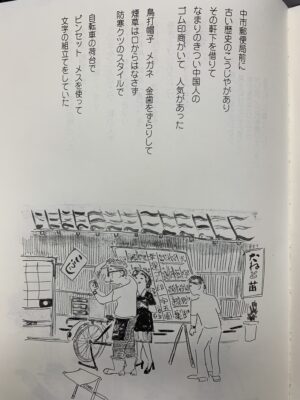 中市郵便局前に
古い歴史のこうじやがあり
その軒下を借りて
なまりのきつい中国人の
ゴム印商がいて　人気があった
鳥打帽子　メガネ　金歯をずらりして
煙草は口からはなさず
防寒クツのスタイルで
自転車の荷台で
ピンセット　メスを使って
文字の組立てをしていた